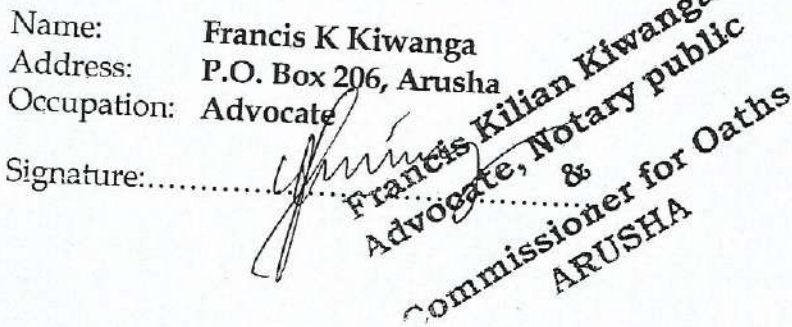 Name: Francis K Kiwanga
Address: P.O. Box 206, Arusha
Occupation: Advocate
Signature:..............................................
Francis Kilian Kiwanga
Advocate, Notary public
&
Commissioner for Oaths
ARUSHA